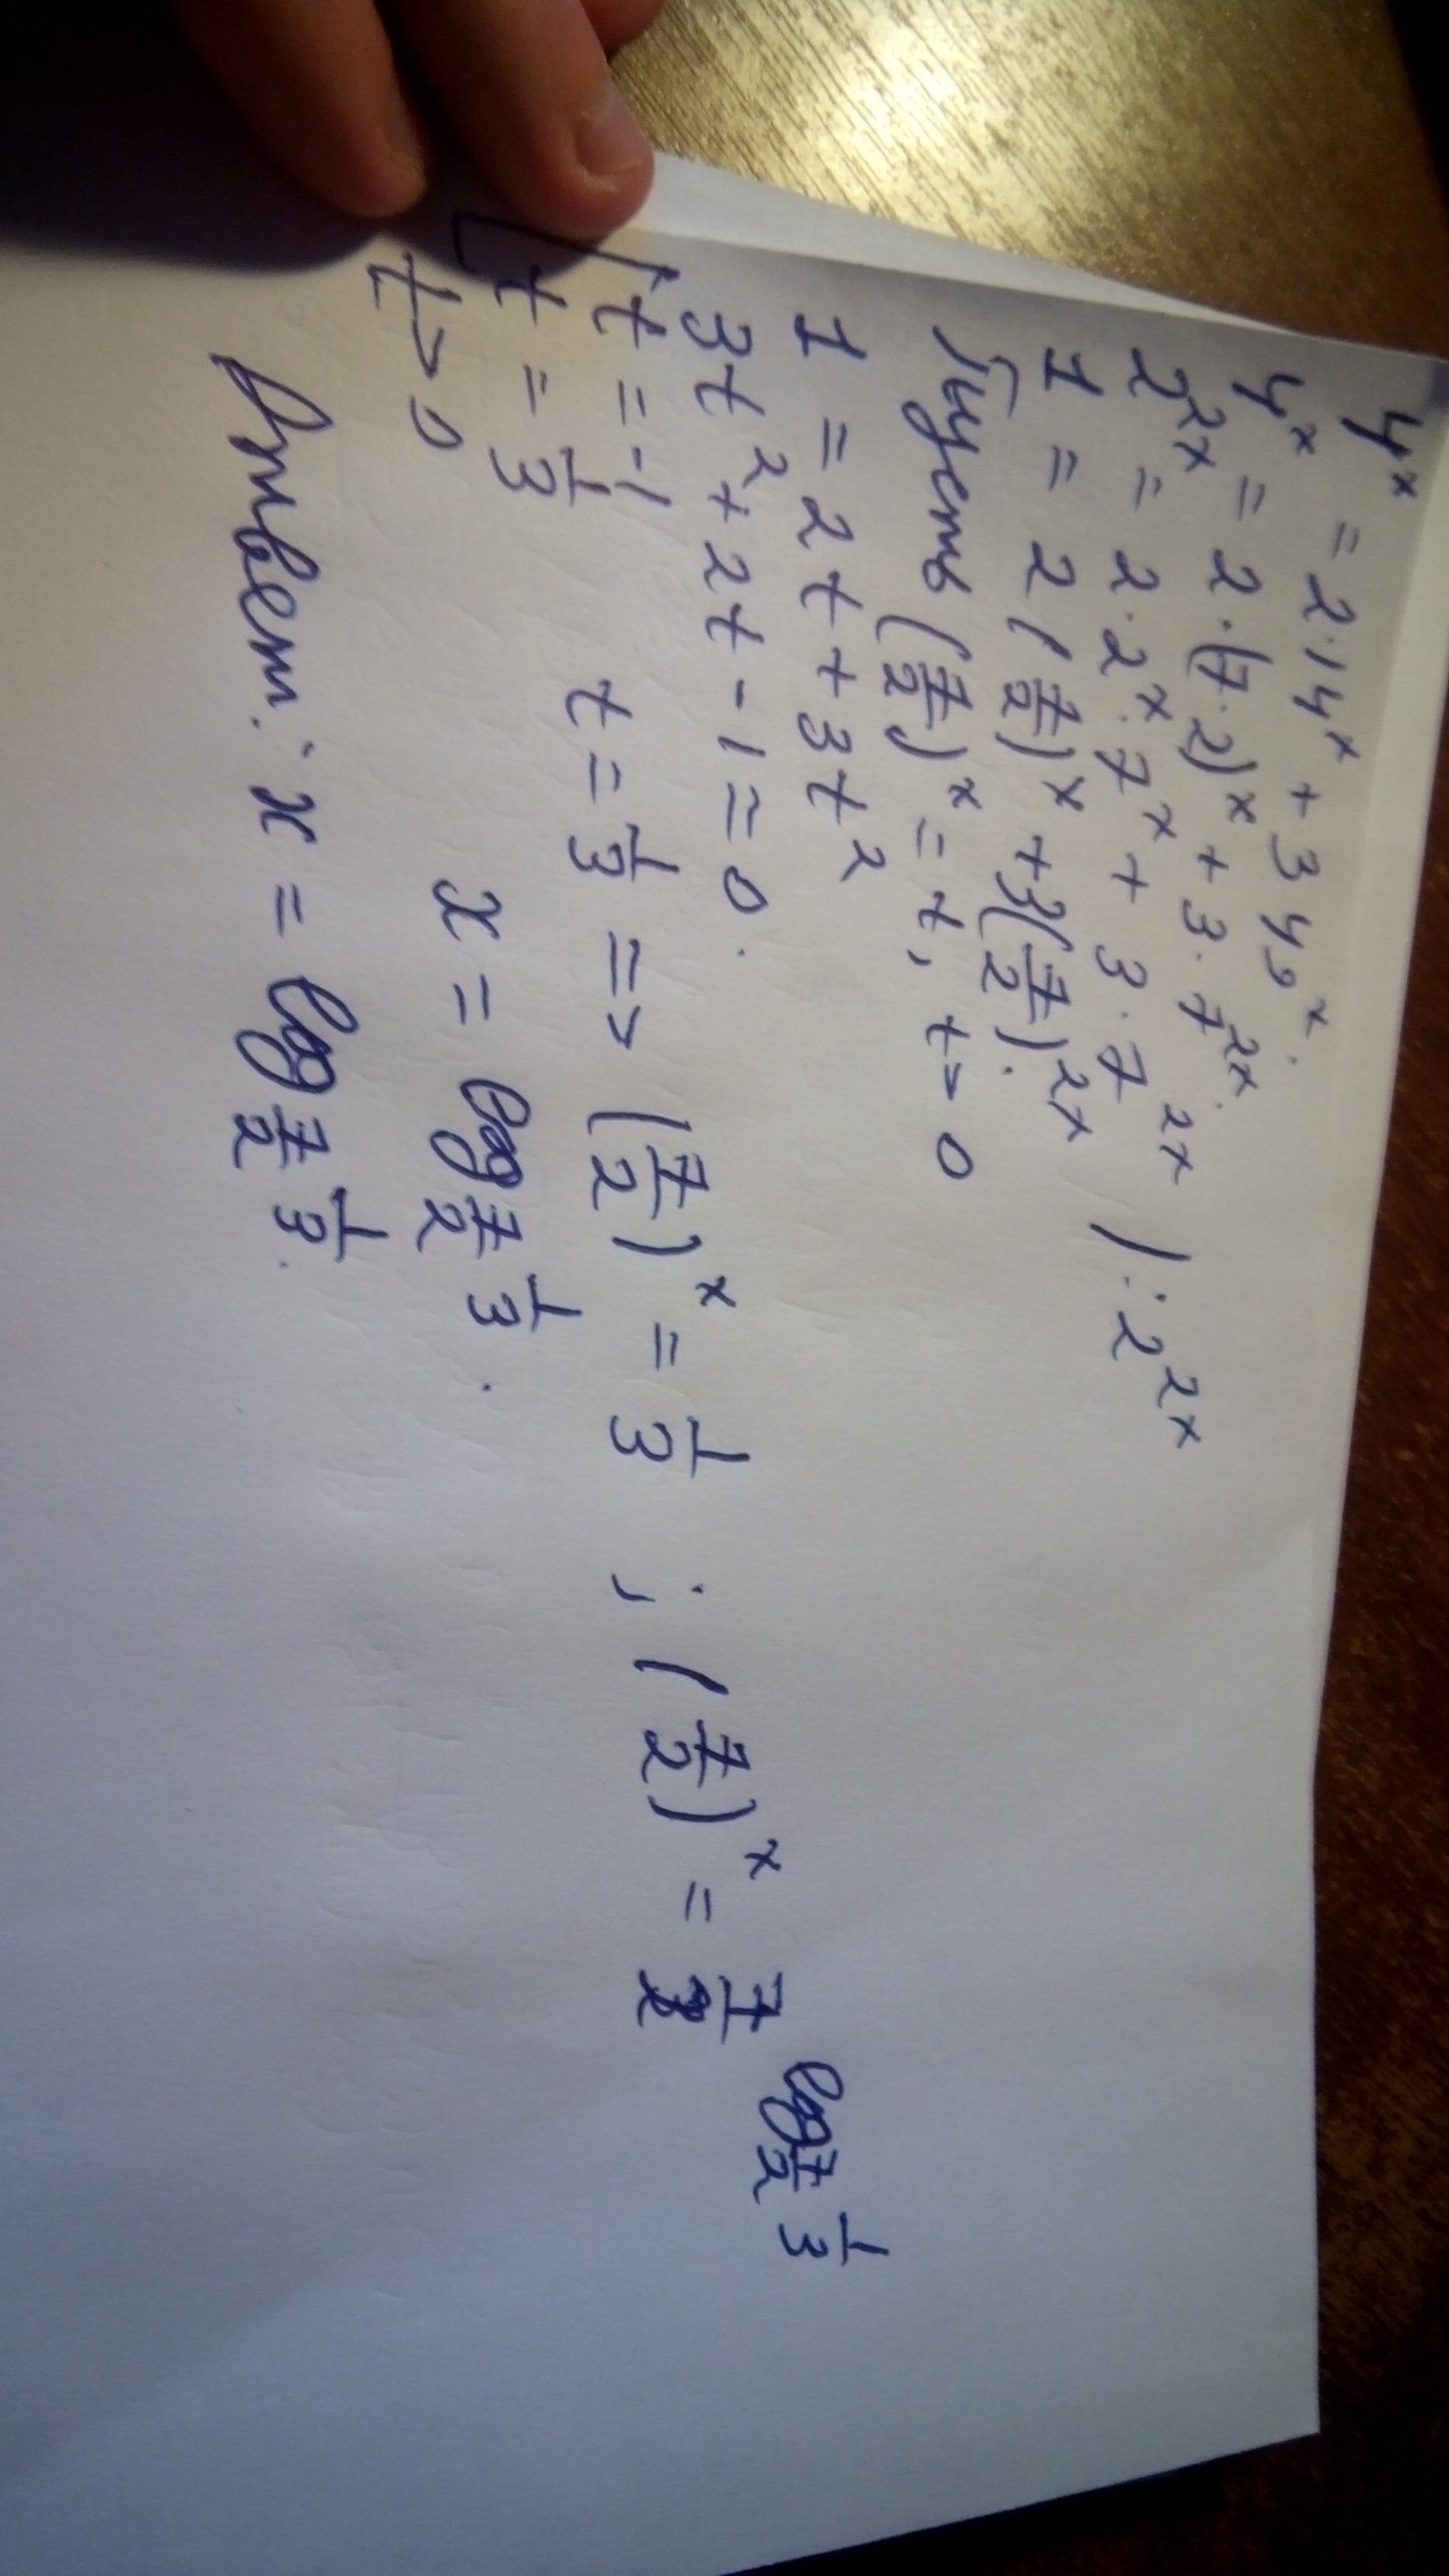 4ˣ = 2·14ˣ + 3 49ˣ.
4ˣ = 2·(7·2)ˣ + 3·7²ˣ.
2²ˣ = 2·2ˣ·7ˣ + 3·7²ˣ |:2²ˣ
1 = 2(7/2)ˣ + 3(7/2)²ˣ.
Пусть (7/2)ˣ = t, t > 0
1 = 2t + 3t²
3t² + 2t - 1 = 0.
[ t = -1
t = 1/3
t > 0
t = 1/3 => (7/2)ˣ = 1/3 ; (7/2)ˣ = 7/2 log 7/2 1/3
x = log 7/2 1/3.
Ответ: x = log 7/2 1/3.